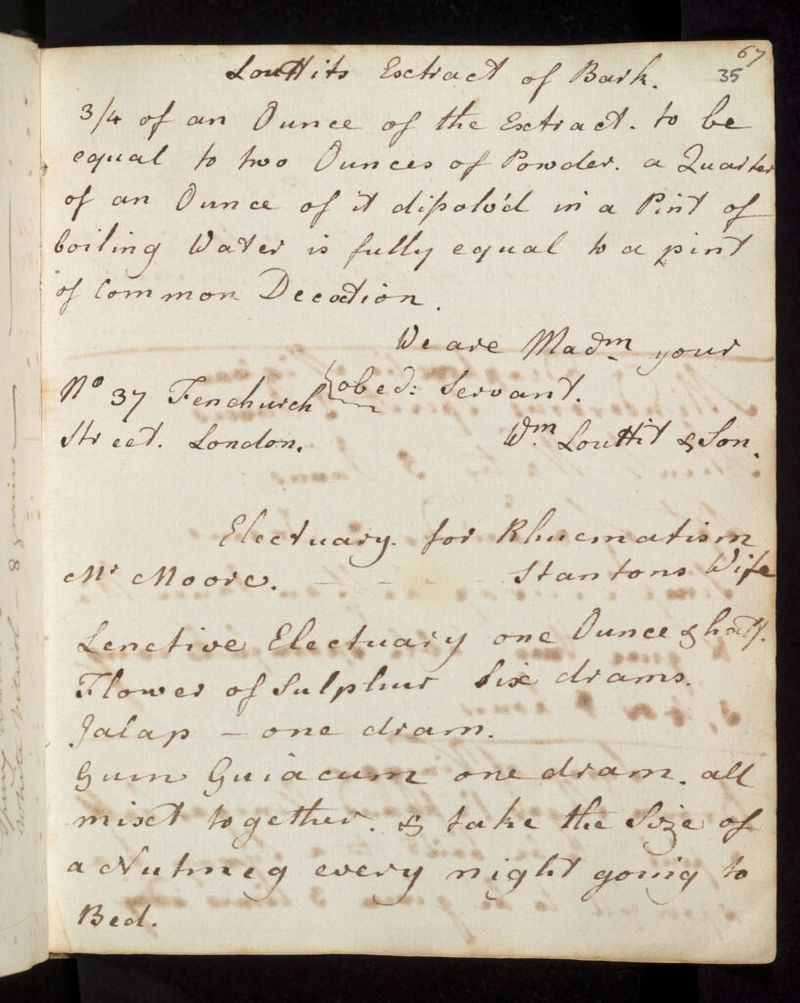 67
35
Louttits Extract of Bark.
3/4 of an Ounce of the Extract. to be
equal to two Ounces of Powder. a Quarter
of an Ounce of it dißolv'd in a Pint of
boiling Water is fully equal to a pint
of Common Decoction.
We are Madm your
No 37 Fenchurch obed: Servant.
Street. London. Wm Louttit & Son.
Electuary. for Rhuematism
Mr Moore. - - - Stantons Wife
Lenetive Electuary one Ounce & half.
Flower of Sulphur Six drams.
Jalap - one dram.
Gum Guiacum one dram. all
mixt together. & take the Size of
a Nutmeg every night going to
Bed.